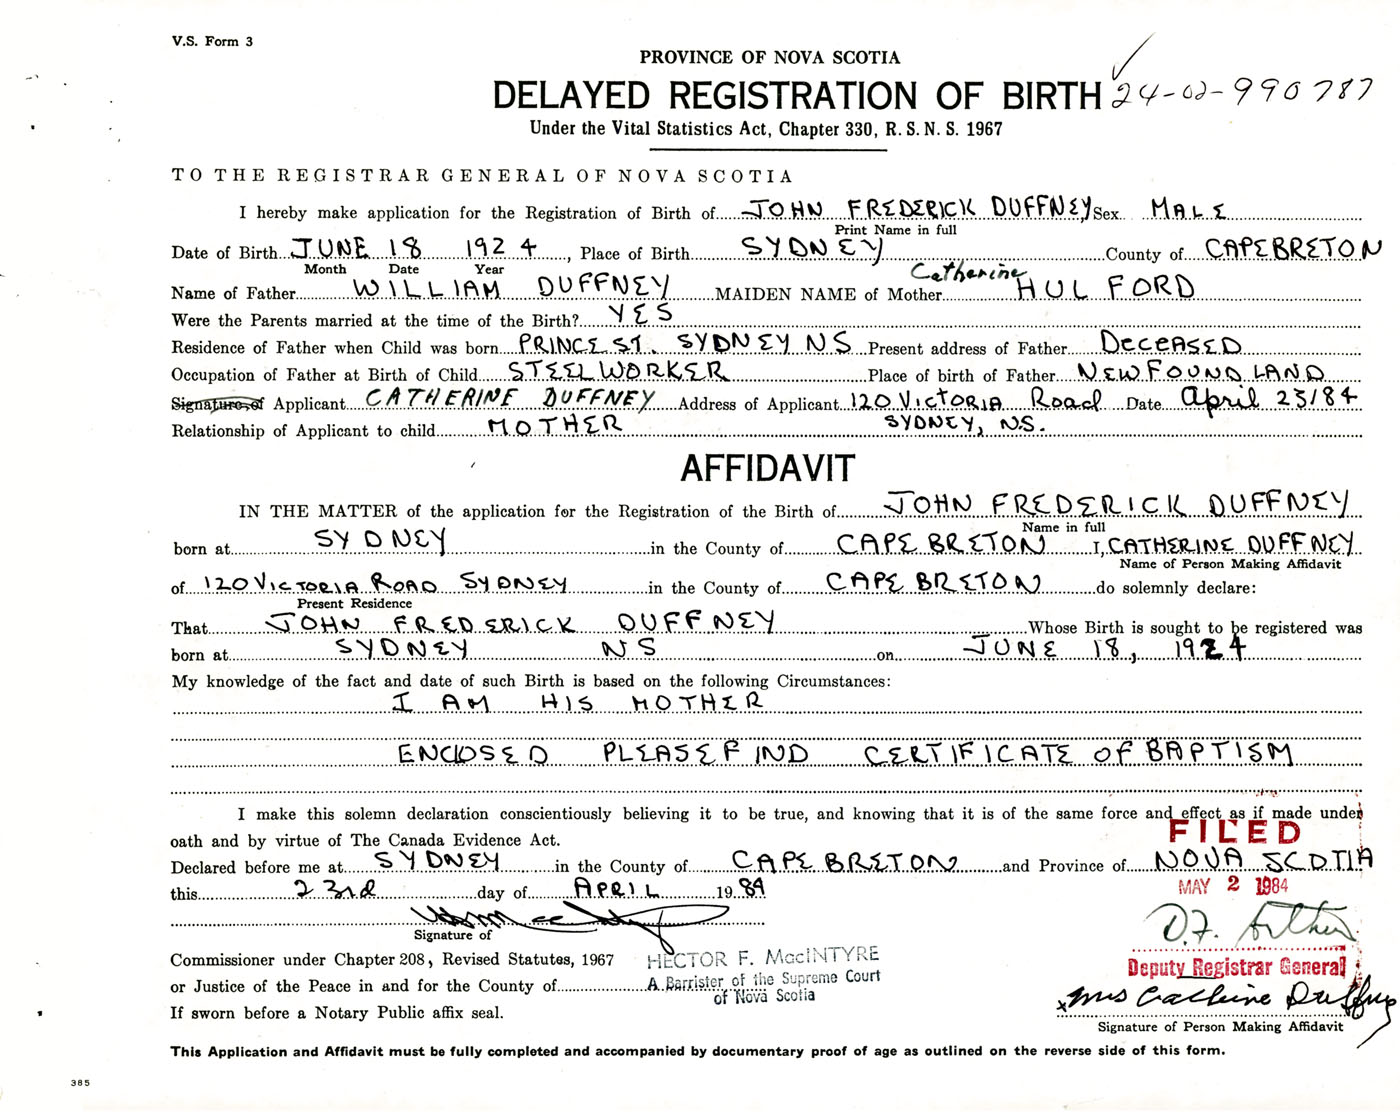 V.S. Form 3
PROVINCE OF NOVA SCOTIA
DELAYED REGISTRATION OF BIRTH 24-02-990787
Under the Vital Statistics Act, Chapter 330, R. S. N. S. 1967
TO THE REGISTRAR GENERAL OF NOVA SCOTIA
I hereby make application for the Registration of Birth of JOHN FREDERICK DUFFNEY Sex MALE
Print Name in full
Date of Birth JUNE 18 1924, Place of Birth SYDNEY County of CAPE BRETON
Month Date Year
Catherine
Name of Father WILLIAM DUFFNEY MAIDEN NAME of Mother HULFORD
Were the Parents married at the time of the Birth? YES
Residence of Father when Child was born PRINCE ST. SYDNEY NS Present address of Father DECEASED
Occupation of Father at Birth of Child STEELWORKER Place of birth of Father NEWFOUNDLAND
Signature of Applicant CATHERINE DUFFNEY Address of Applicant 120 VICTORIA Road Date April 23/84
Relationship of Applicant to child MOTHER SYDNEY, N.S.
AFFIDAVIT
IN THE MATTER of the application for the Registration of the Birth of JOHN FREDERICK DUFFNEY
Name in full
born at SYDNEY in the County of CAPE BRETON I, CATHERINE DUFFNEY
Name of Person Making Affidavit
of 120 VICTORIA ROAD SYDNEY in the County of CAPE BRETON do solemnly declare:
Present Residence
That JOHN FREDERICK DUFFNEY Whose Birth is sought to be registered was
born at SYDNEY NS on JUNE 18, 1924
My knowledge of the fact and date of such Birth is based on the following Circumstances:
I AM HIS MOTHER
ENCLOSED PLEASE FIND CERTIFICATE OF BAPTISM
I make this solemn declaration conscientiously believing it to be true, and knowing that it is of the same force and effect as if made under
oath and by virtue of The Canada Evidence Act.
FILED
Declared before me at SYDNEY in the County of CAPE BRETON and Province of NOVA SCOTIA
this 23rd day of APRIL 1984
MAY 2 1984
Signature of
D.F.
Commissioner under Chapter 208, Revised Statutes, 1967
HECTOR F. MacINTYRE
Deputy Registrar General
or Justice of the Peace in and for the County of
A Barrister of the Supreme Court
of Nova Scotia
x Mrs Catherine Duffney
If sworn before a Notary Public affix seal.
Signature of Person Making Affidavit
This Application and Affidavit must be fully completed and accompanied by documentary proof of age as outlined on the reverse side of this form.
385